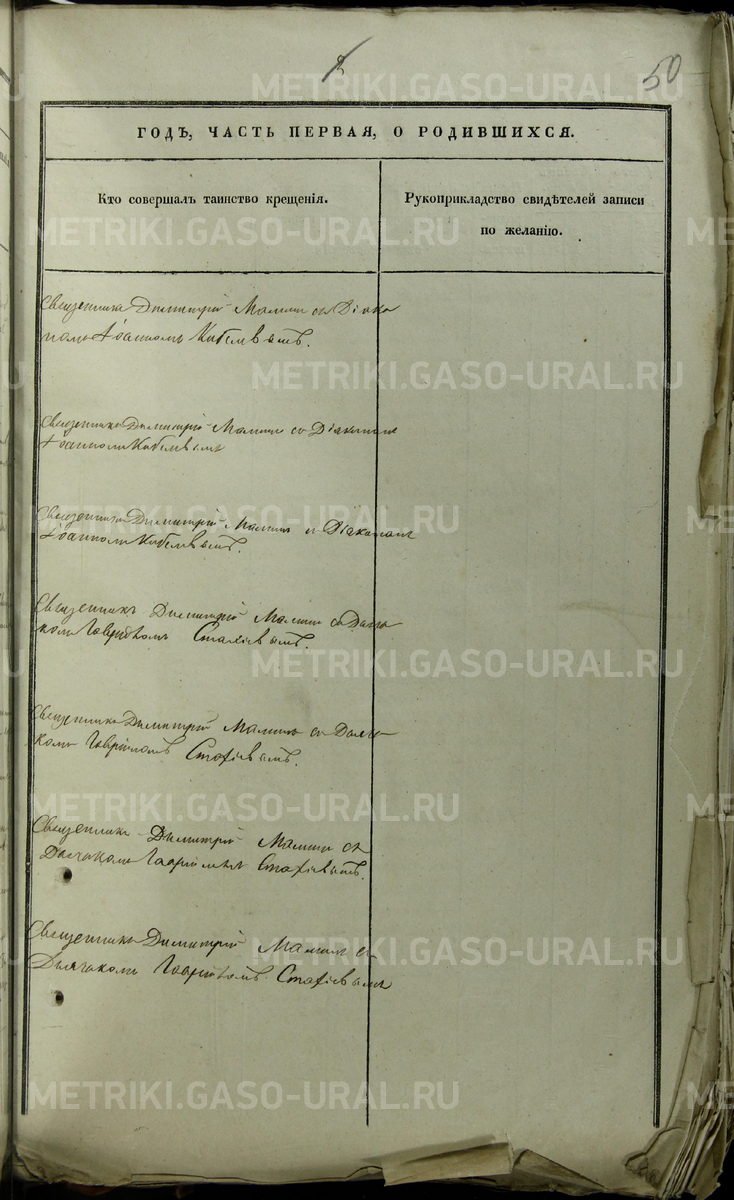 2
50
ГОДЪ, ЧАСТЬ ПЕРВАЯ, О РОДИВШИХСЯ.
Кто совершалъ таинство крещенія.
Рукоприкладство свидѣтелей записи
по желанію.
Священникъ Димитрій Маминъ съ Діако
номъ Іоанномъ
Священникъ Димитрій Маминъ со Діакономъ
Іоанномъ
Священникъ Димитрій Маминъ съ Діакономъ
Іоанномъ
Священникъ Димитрій Маминъ съ Дьяч
комъ Гавріиломъ Стахіевымъ.
Священникъ Димитрій Маминъ съ Дьяч
комъ Гавріиломъ Стахіевымъ.
Священникъ Димитрій Маминъ съ
Дьячкомъ Гавріиломъ Стахіевымъ.
Священникъ Димитрій Маминъ съ
Дьячкомъ Гавріиломъ Стахіевымъ
METRIKI.GASO-URAL.RU